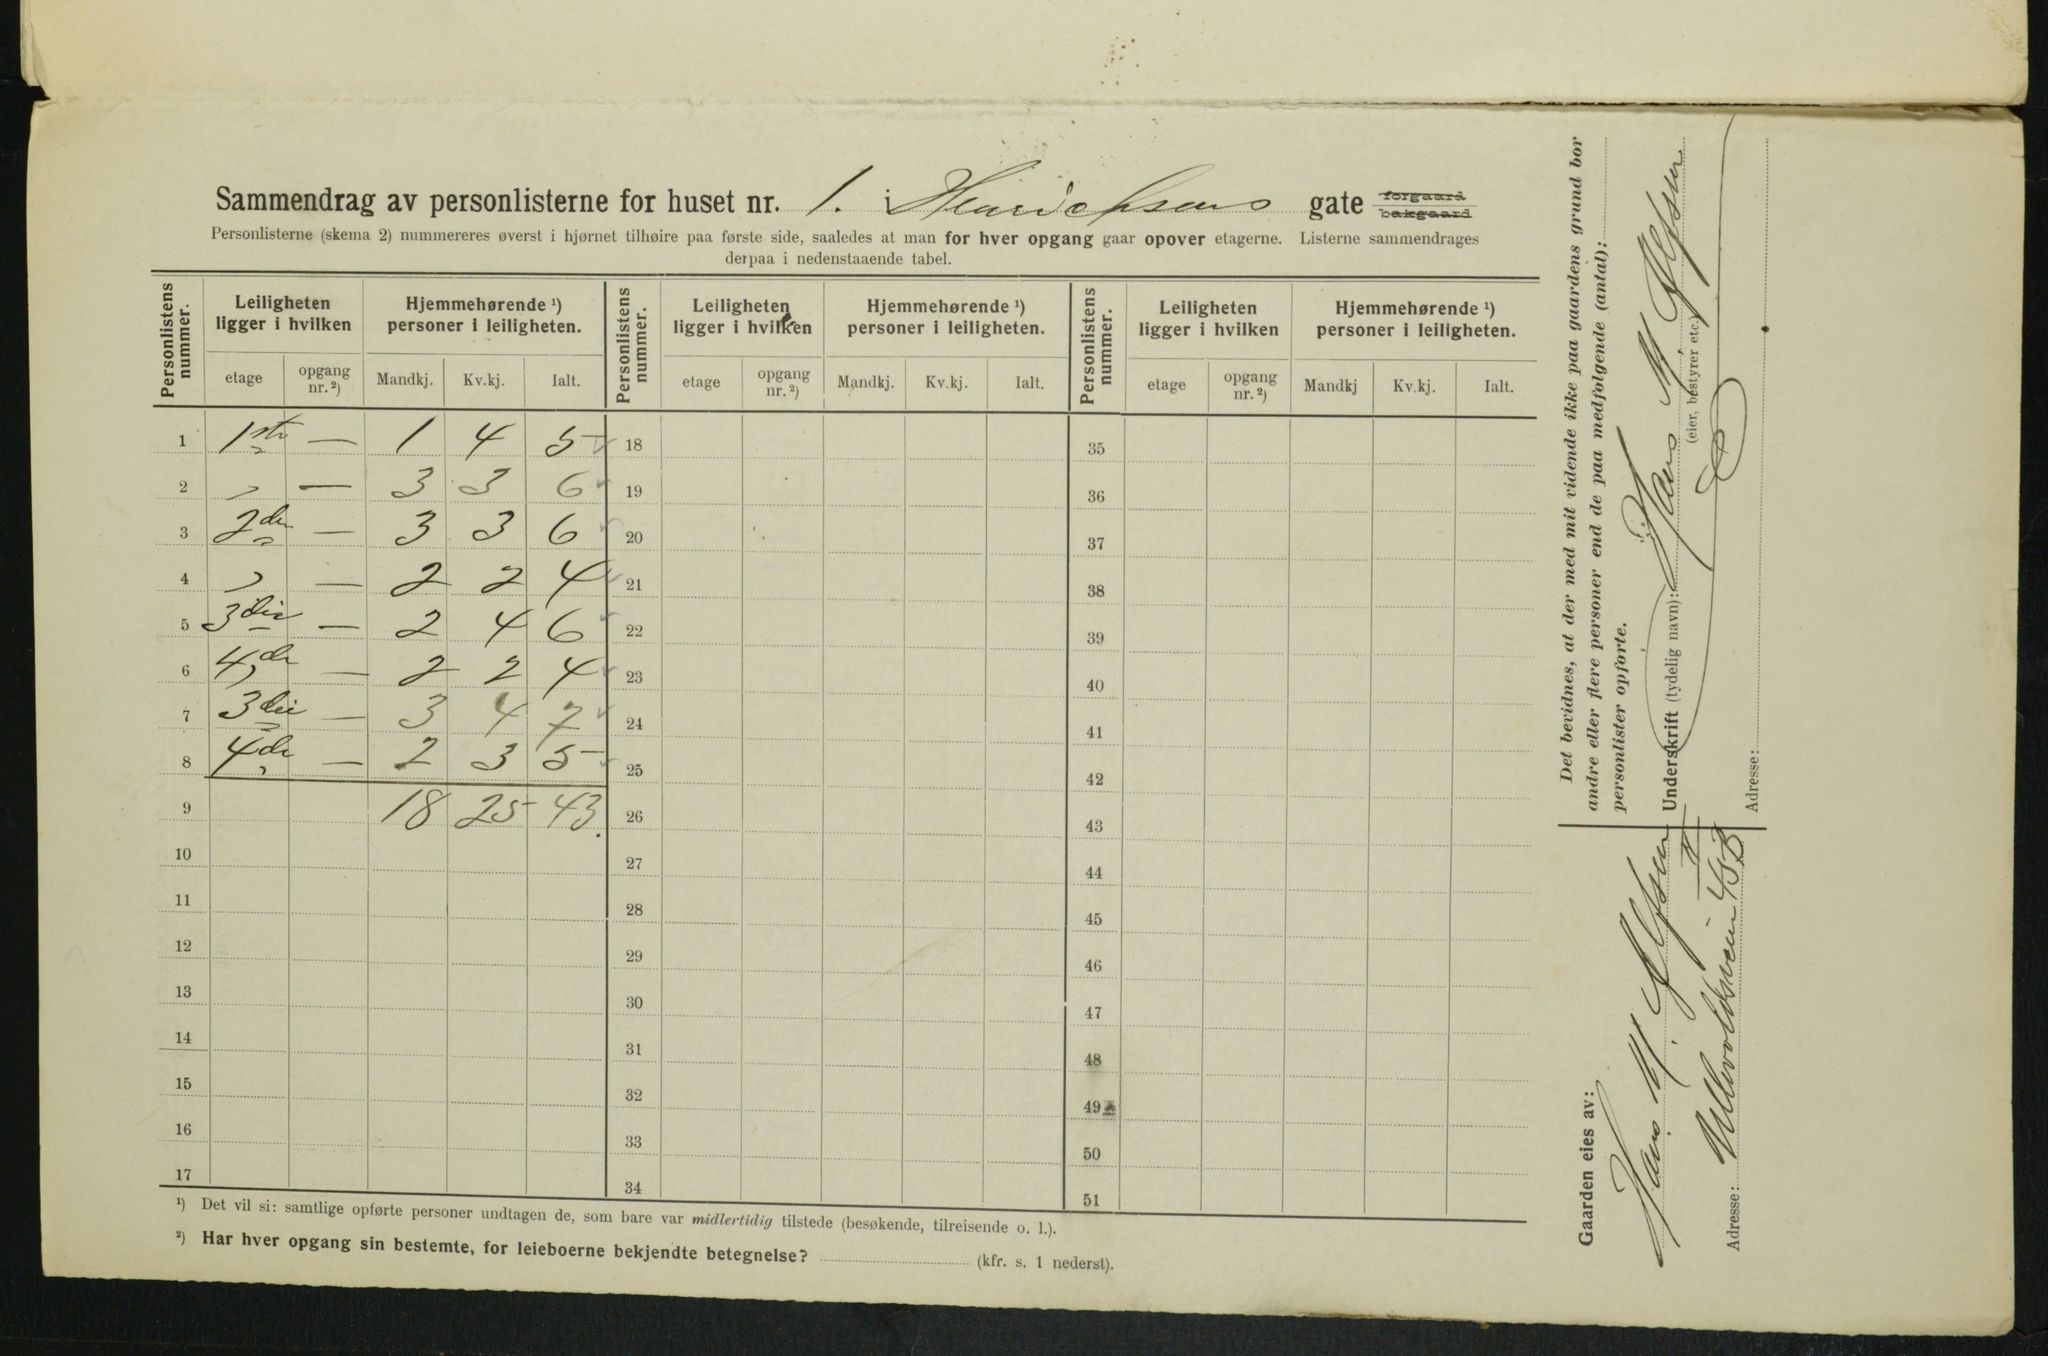 Sammendrag av personlisterne for huset nr. 1. i Henrichsens gate forgaard bakgaard
Personlisterne (skema 2) nummereres øverst i hjørnet tilhøire paa første side, saaledes at man for hver opgang gaar opover etagerne. Listerne sammendrages
derpaa i nedenstaaende tabel.
Personlistens nummer. Leiligheten ligger i hvilken Hjemmehørende ¹) personer i leiligheten. Personlistens nummer. Leiligheten ligger i hvilken Hjemmehørende ¹) personer i leiligheten. Personlistens nummer. Leiligheten ligger i hvilken Hjemmehørende ¹) personer i leiligheten.
etage opgang nr. ²) Mandkj. Kv.kj. Ialt. etage opgang nr. ²) Mandkj. Kv.kj. Ialt. etage opgang nr. ²) Mandkj Kv.kj. Ialt.
1 1ste — 1 4 5 18 35
2 " — 3 3 6 19 36
3 2den — 3 3 6 20 37
4 " — 2 2 4 21 38
5 3die — 2 4 6 22 39
6 4de — 2 2 4 23 40
7 3die — 3 4 7 24 41
8 4de — 2 3 5 25 42
9 18 25 43. 26 43
10 27 44
11 28 45
12 29 46
13 30 47
14 31 48
15 32 49
16 33 50
17 34 51
¹) Det vil si: samtlige opførte personer undtagen de, som bare var midlertidig tilstede (besøkende, tilreisende o. l.).
²) Har hver opgang sin bestemte, for leieboerne bekjendte betegnelse? (kfr. s. 1 nederst).
Det bevidnes, at der med mit vidende ikke paa gaardens grund bor
andre eller flere personer end de paa medfølgende (antal):
personlister opførte.
Underskrift (tydelig navn): Hans M. Olfsen
(eier, bestyrer etc.)
Adresse:
Gaarden eies av:
Hans M. Olfsen
Adresse: Ullevoldsvein 45B